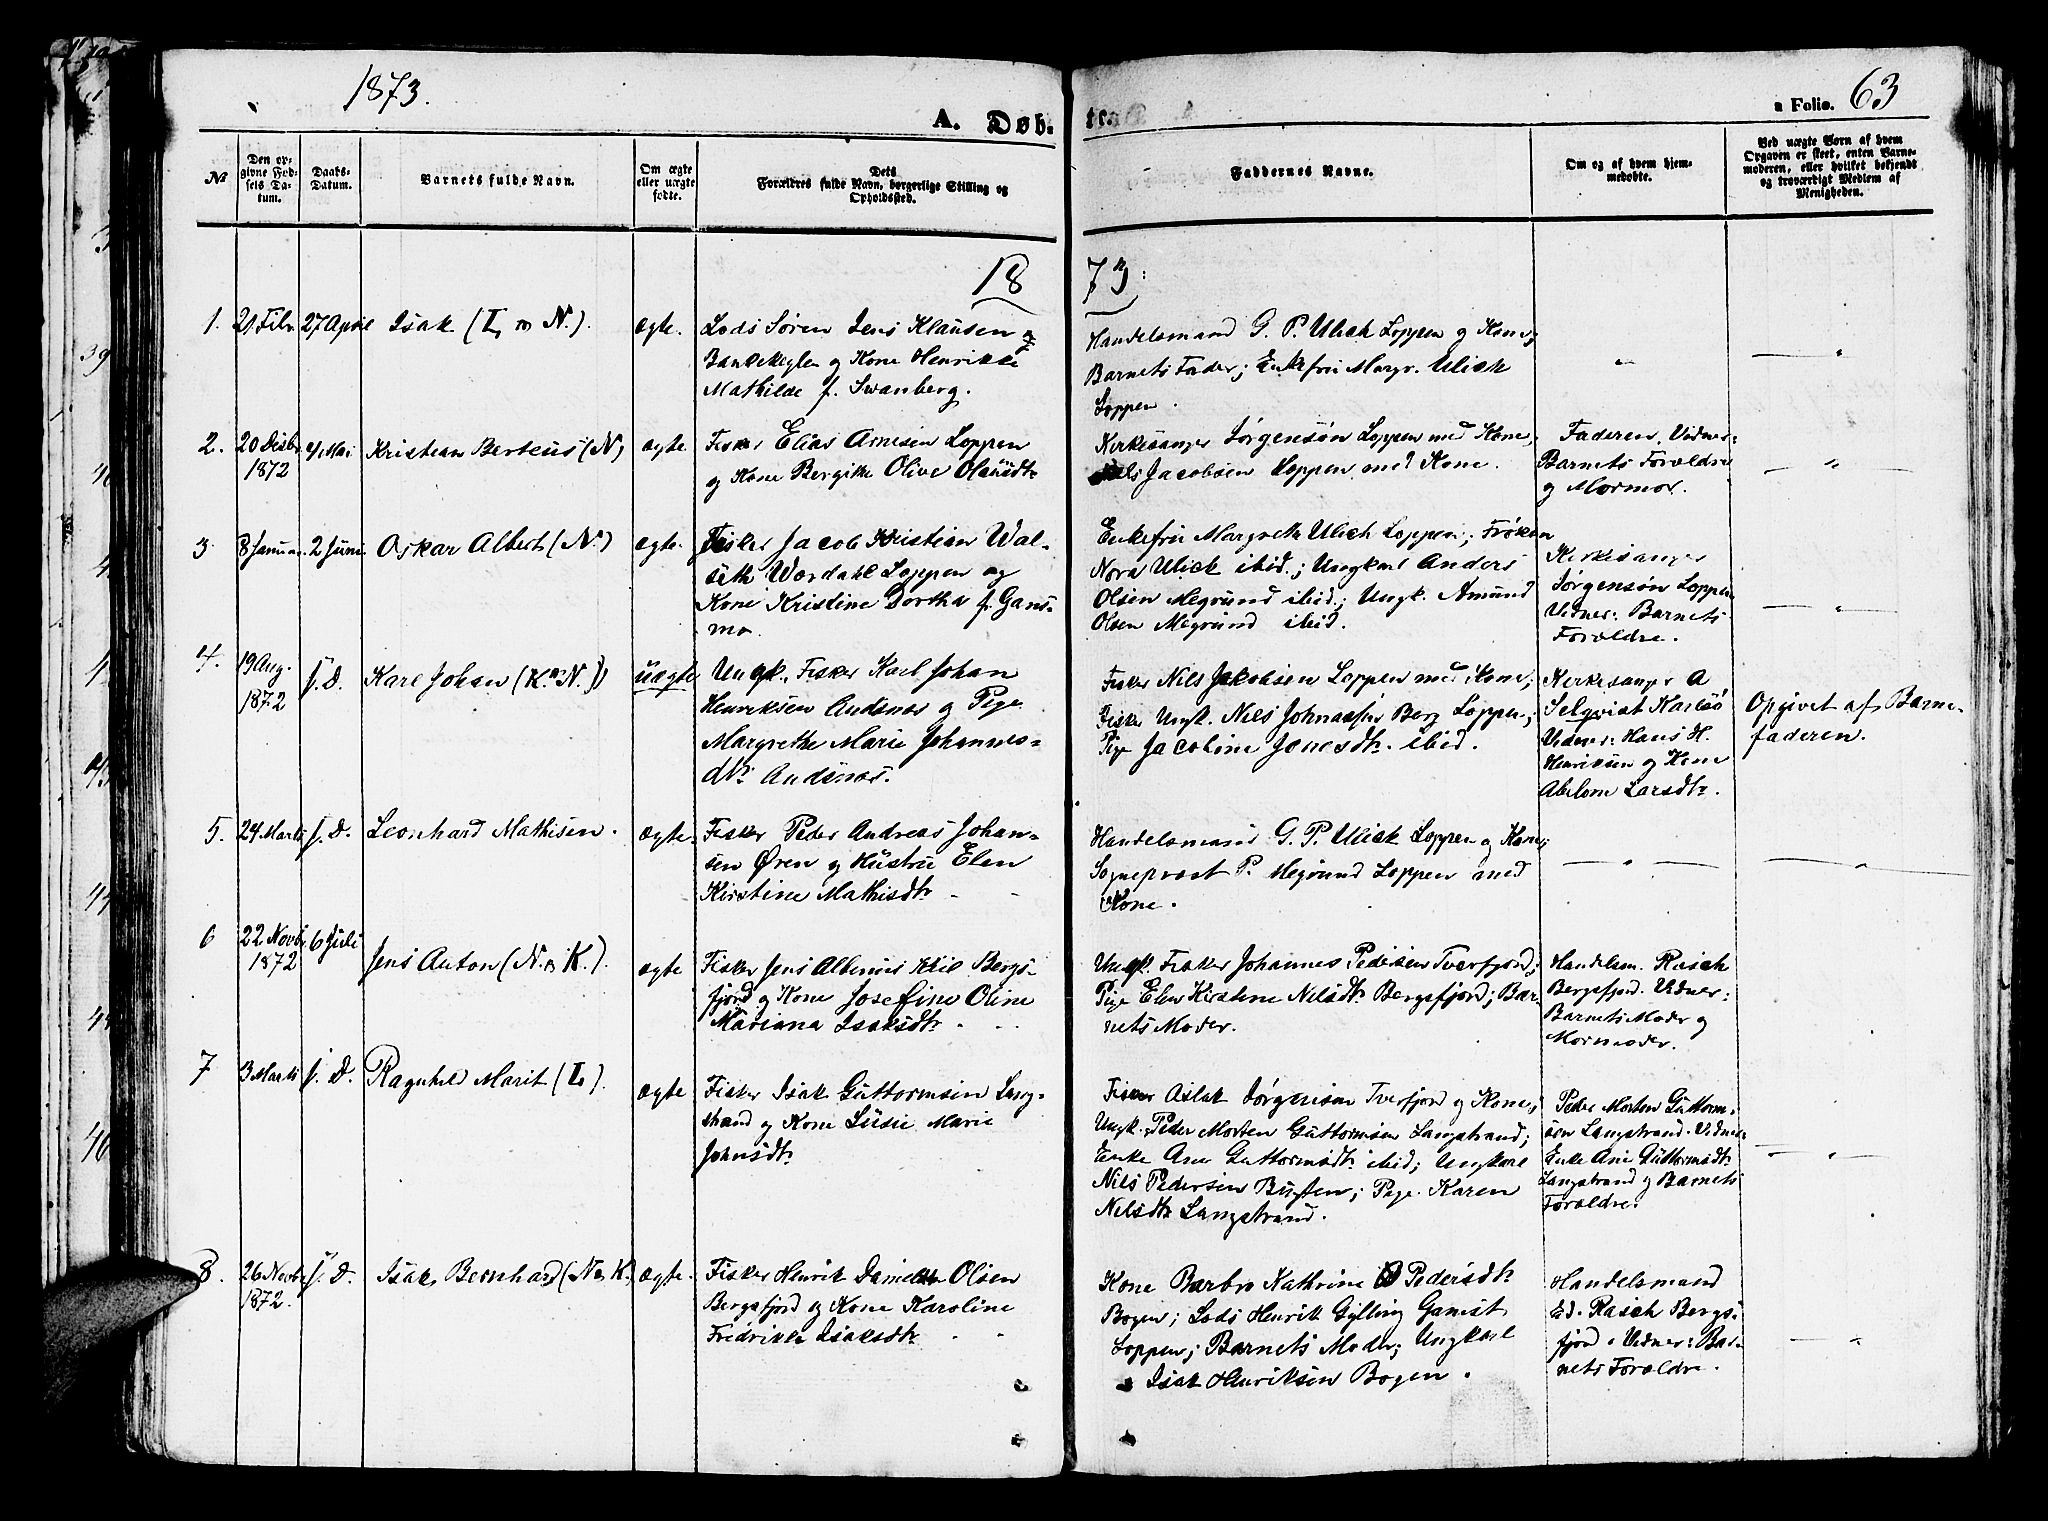 1873.
A. Døb-
a Folio. 63
№
Den op-
givne Fød-
sels Da-
tum.
Daabs-
Datum.
Barnets fulde Navn.
Om ægte
eller uægte
fødte.
Dets
Forældres fulde Navn, borgerlige Stilling og
Opholdssted.
Faddernes Navne.
Om og af hvem hjem-
medøbte.
Ved uægte Børn af hvem
Opgaven er skeet, enten Barne-
moderen, eller hvilket bekjendt
og troværdigt Medlem af
Menigheden.
18
73:
1. 21 Febr. 27 April Isak (L. & N.). ægte.
Lods Søren Jens Klausen
Bankekeglen og Kone Henrikke
Mathilde f. Swanberg.
Handelsmand G. P. Ulich Loppen og Kone;
Barnets Fader; Enkefru Margr. Ulich
Loppen.
2. 20 Desbr.
1872
4 Mai Kristian Berteus (N) ægte.
Fisker Elias Arnesen Loppen
og Kone Bergitte Olive Olausdtr
Kirkesanger Jørgensøn Loppen med Kone;
Nils Jacobsen Loppen med Kone.
Faderen. Vidner:
Barnets Forældre
og Mormor.
3. 8 Januar. 2 Juni. Oskar Albert (N.) ægte.
Fisker Jacob Kristian Wal-
seth Værdahl Loppen og
Kone Kristine Dorthea f. Gans-
mo.
Enkefru Margrethe Ulich Loppen; Frøken
Nora Ulich ibid.; Ungkarl Anders
Olsen Megrund ibid.; Ungk. Amund
Olsen Megrund ibid.
Kirkesanger
Jørgensøn Loppen
Vidner: Barnets
Forældre.
4. 19 Aug.
1872
s. D. Karl Johan (K. N.) uægte
Ungk. Fisker Karl Johan
Henriksen Andsnæs og Pige
Margrethe Marie Johannes-
dtr. Andsnæs.
Fisker Nils Jakobsen Loppen med Kone;
Fisker Ungk. Nils Johnassen Berg Loppen;
Pige Jacobine Jonesdtr. ibid.
Kirkesanger A
Selqvist Karlsø
Vidner: Hans H.
Henriksen og Kone
Abelone Larsdtr.
Opgivet af Barne-
faderen.
5. 24. Marts s. D. Leonhard Mathisen. ægte-
Fisker Peder Andreas Johan-
sen Øren og Hustru Elen
Kirstine Mathisdtr.
Handelsmand G. P. Ulich Loppen og Kone;
Sogneprest P. Megrund Loppen med
Kone.
6 22 Novbr
1872
6 Juli Jens Anton (N. & K.). ægte
Fisker Jens Albinus Kiil Bergs-
fjord og Kone Josefine Oline
Mariana Isaksdtr.
Ungk. Fisker Johannes Pedersen Tverfjord;
Pige Elen Kirstine Nilsdtr. Bergsfjord; Bar-
nets Moder.
Handelsm. Rasch
Bergsfjord. Vidner:
Barnets Moder og
Mormoder.
7 3 Marts s. D. Ragnhild Marit (L). ægte
Fisker Isak Guttormsen Lang-
strand og Kone Lusie Marie
Johnsdtr.
Fisker Aslak Jørgensen Tverfjord og Kone;
Ungk. Peder Morten Guttormsen Langstrand;
Enke Ane Guttormsdtr. ibid; Ungkarl
Nils Pedersen Bugten; Pige Karen
Nilsdtr Langstrand.
Peder Morten Guttorm-
sen Langstrand. Vidner:
Enke Ane Guttormsdtr.
Langstrand og Barnets
Forældre.
8. 26 Novbr
1872.
s. D. Isak Bernhard (N. & K.) ægte.
Fisker Henrik Daniel Olsen
Bergsfjord og Kone Karoline
Fredrikke Isaksdtr
Kone Barbro Kathrine Pedersdtr
Bogen; Lods Henrik Gylling Gamst
Loppen; Barnets Moder; Ungkarl
Isak Henriksen Bogen.
Handelsmand
Ed. Rasch Bergs-
fjord. Vidner: Bar-
nets Forældre.